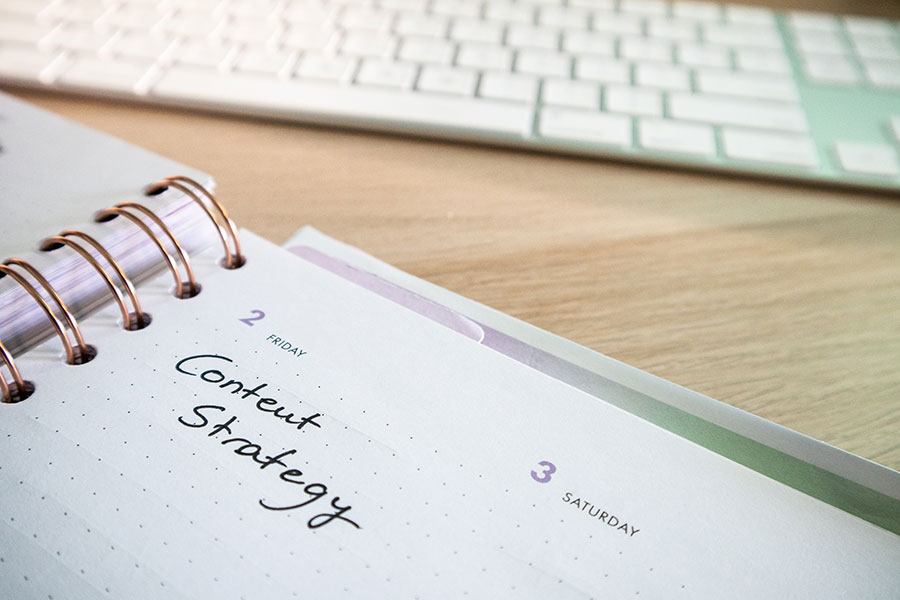 2 FRIDAY
Content
Strategy
3 SATURDAY